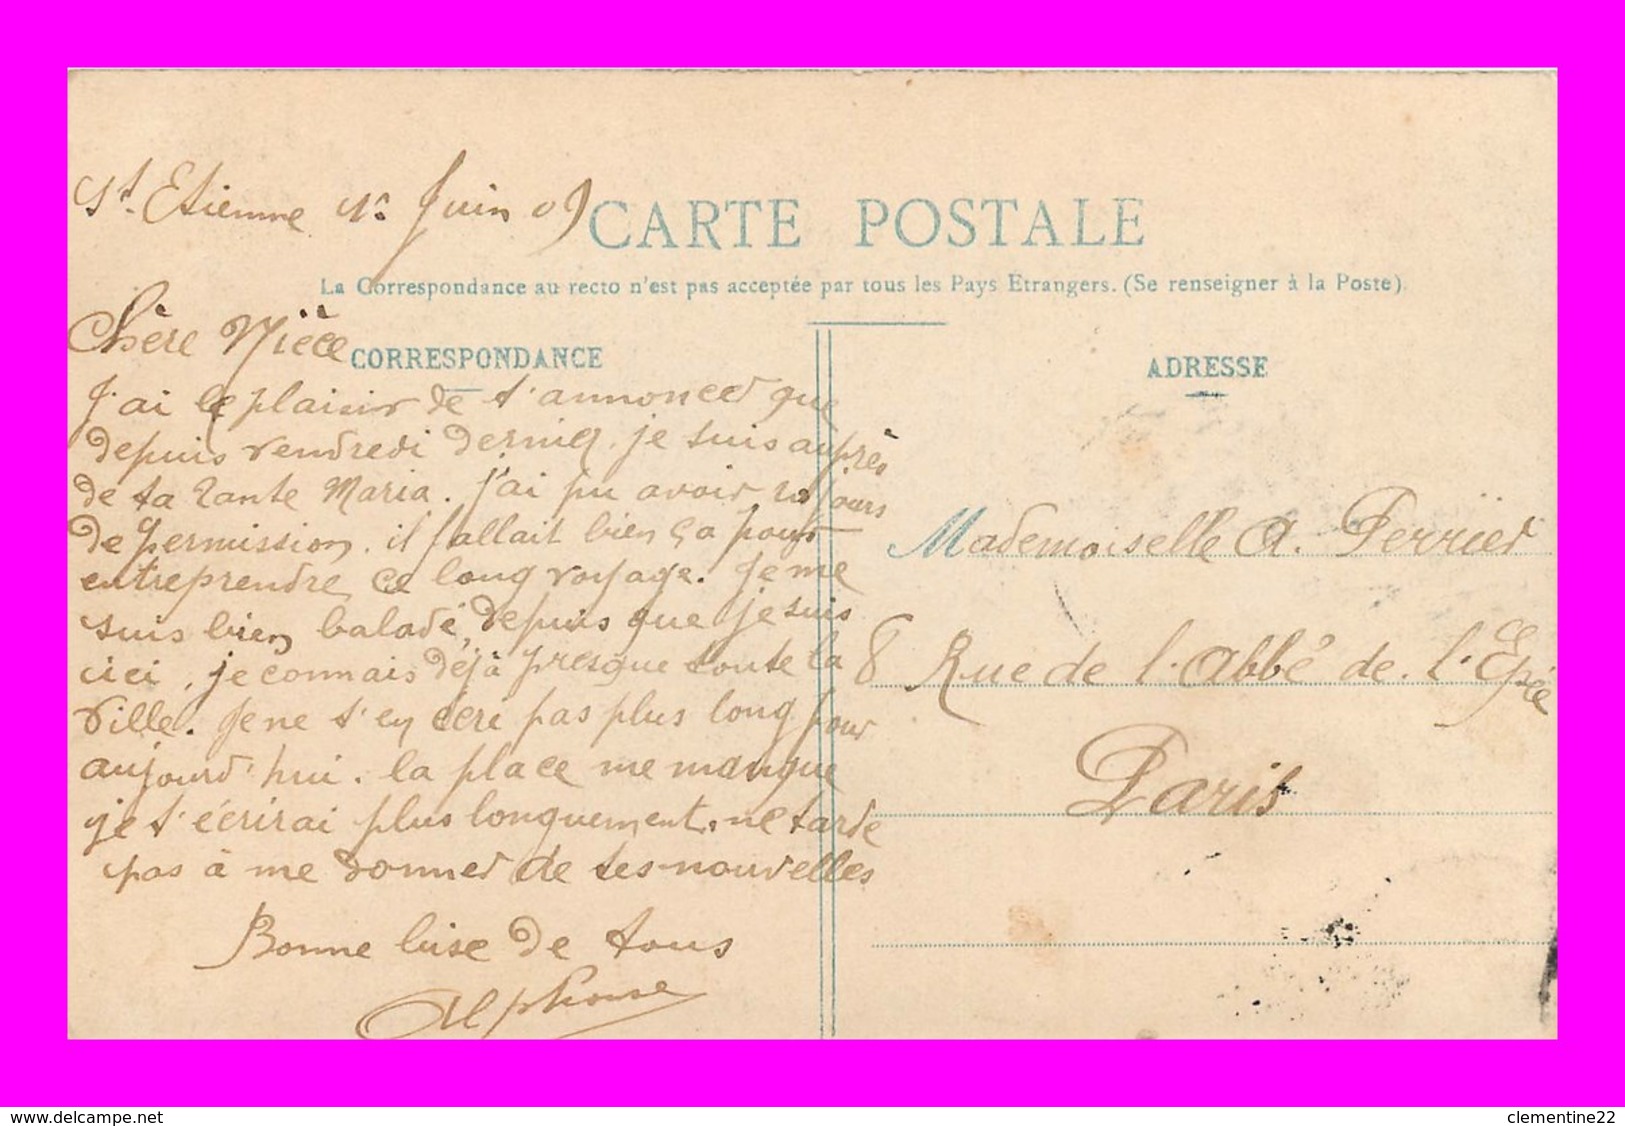 St. Etienne 1er Juin 09
CARTE POSTALE
La Correspondance au recto n'est pas acceptée par tous les Pays Etrangers. (Se renseigner à la Poste)
Chère Nièce
CORRESPONDANCE
J'ai le plaisir de t'annoncer que
depuis vendredi dernier, je suis auprès
de ta Tante Maria. j'ai pu avoir jours
de permission. il fallait bien ça pour
entreprendre ce long voyage. Je me
suis bien baladé, depuis que je suis
ici, je connais déjà presque toute la
ville. Je ne t'en pas plus long pour
aujourd'hui. la place me manque
je t'écrirai plus longuement. ne tarde
pas à me donner de tes nouvelles
Bonne bise de tous
Alphonse
ADRESSE
Mademoiselle A. Perrier
8 Rue de l'Abbé de l'Epée
Paris
www.delcampe.net
clementine22